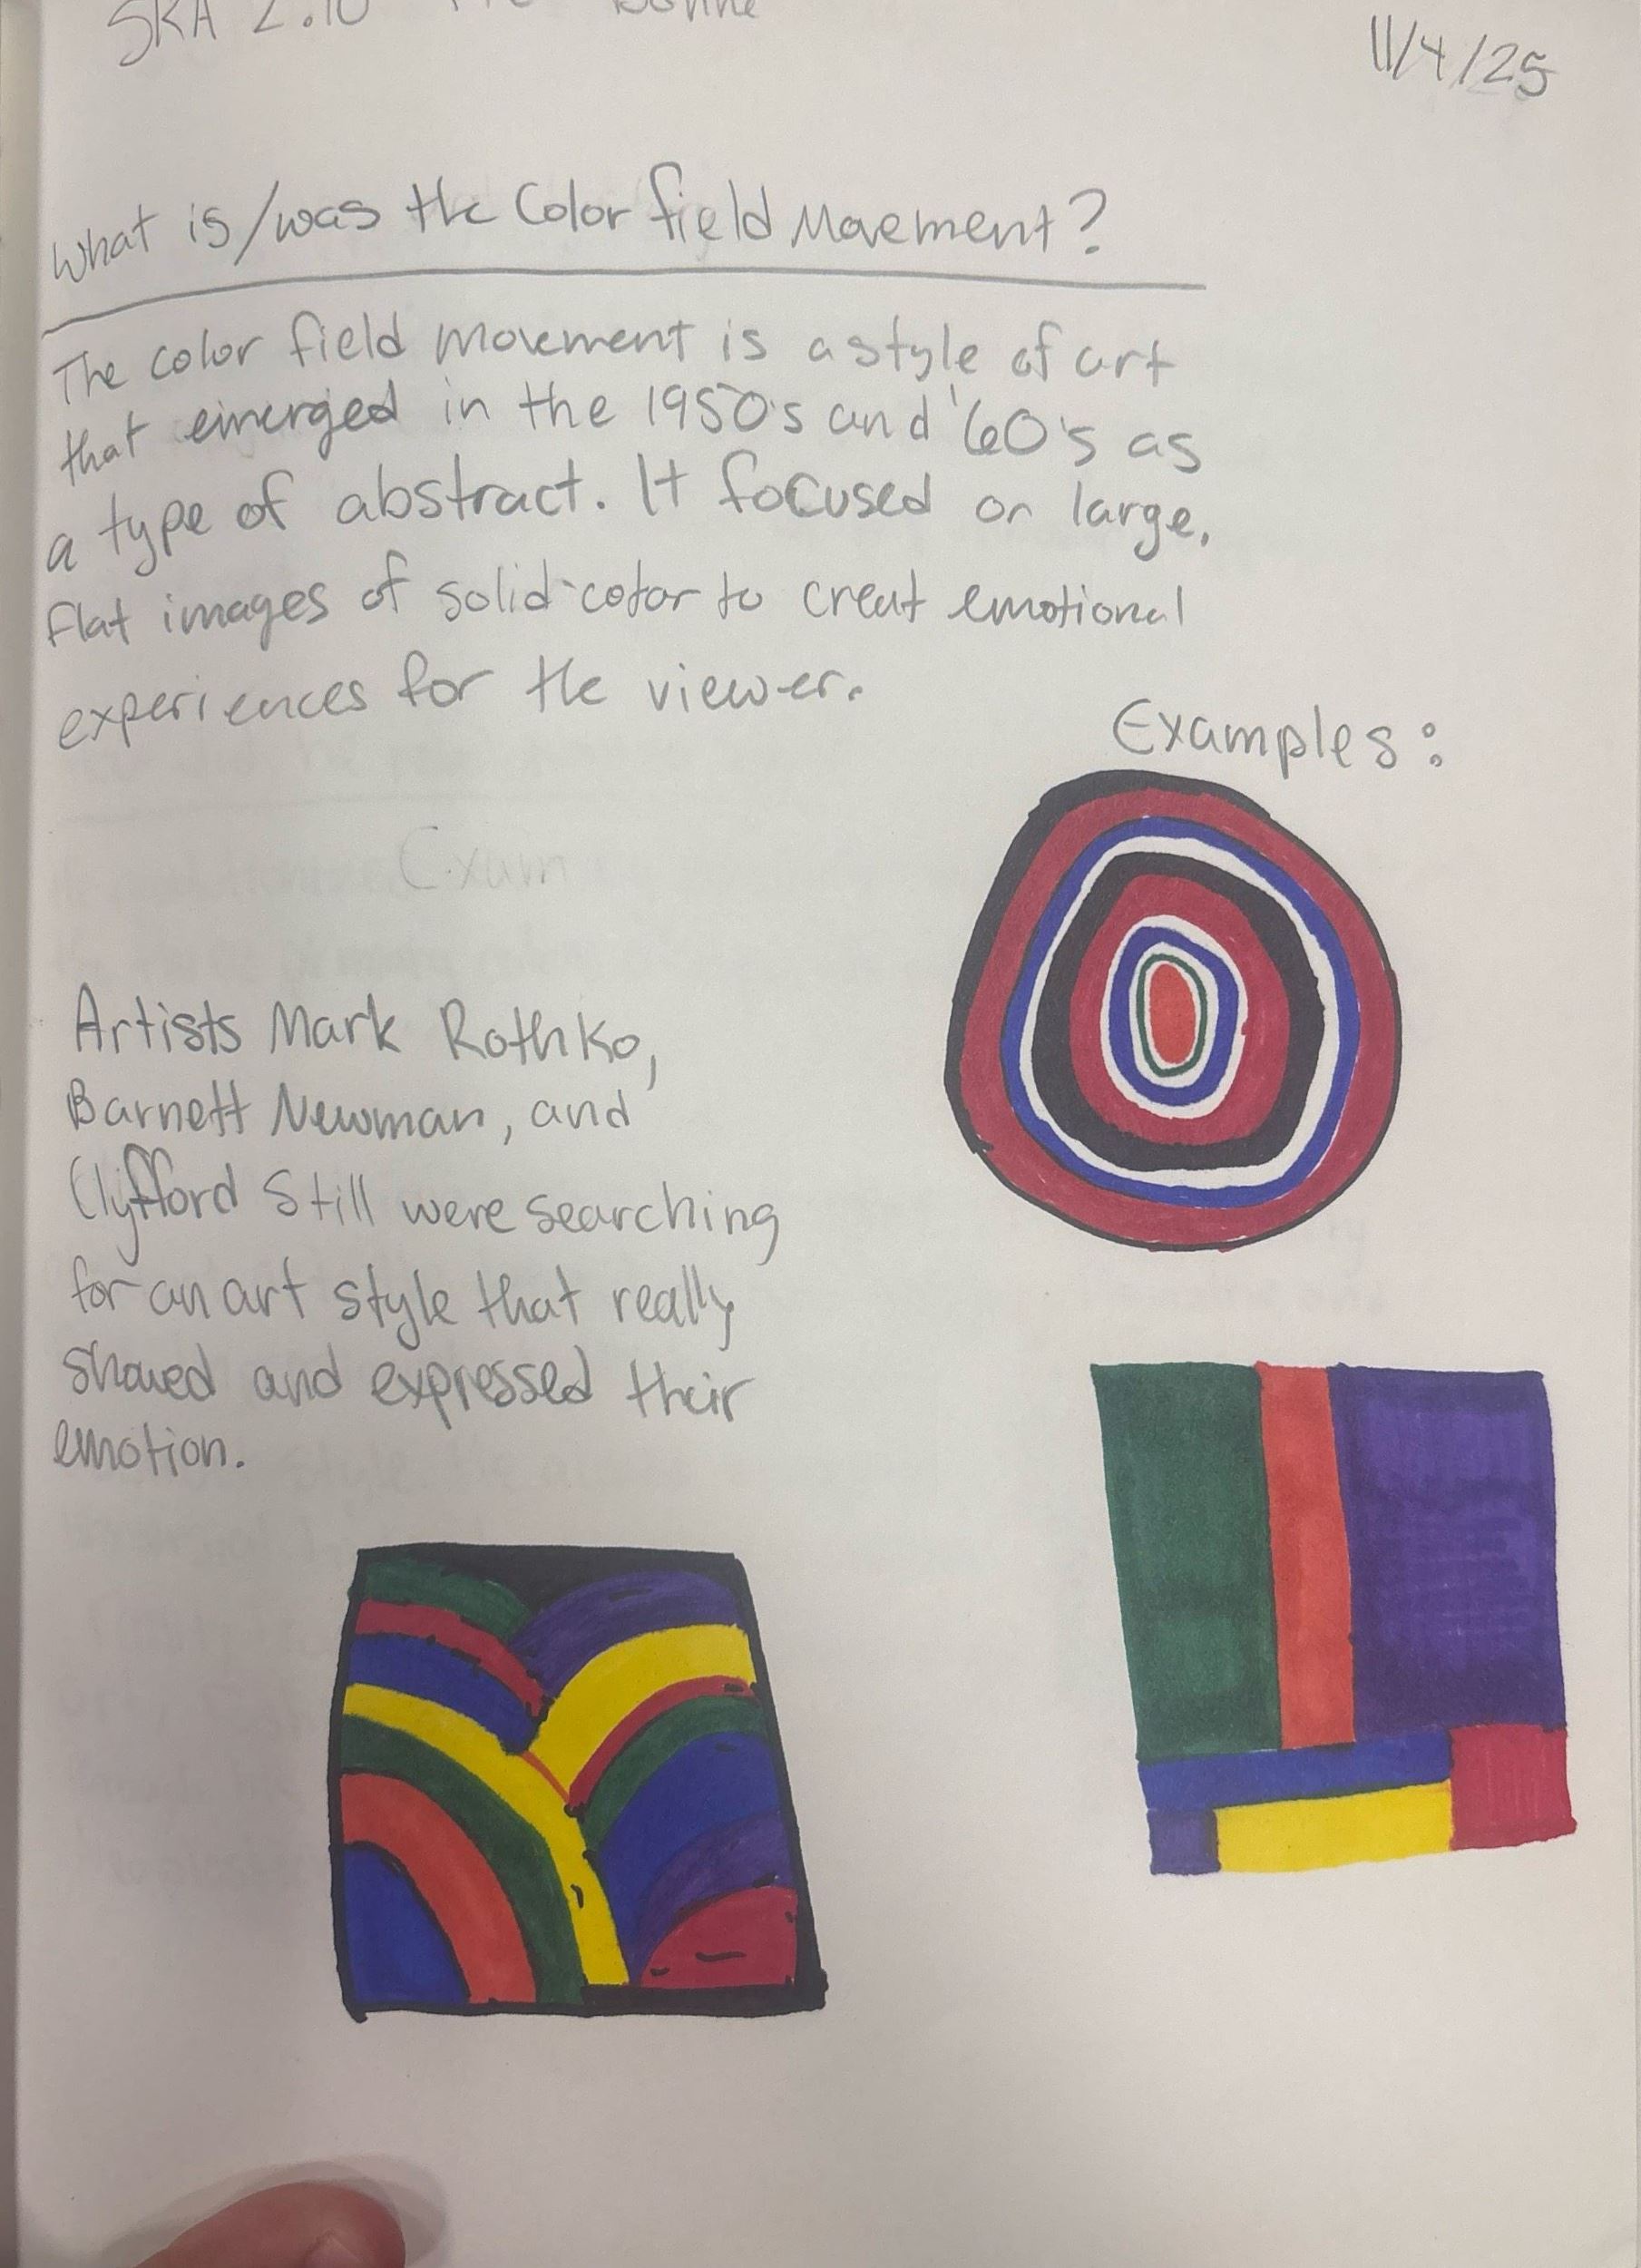 SKA 2.10
11/4/25
What is/was the Color field Movement?
The color field movement is a style of art
that emerged in the 1950's and '60's as
a type of abstract. It focused on large,
flat images of solid-color to creat emotional
experiences for the viewer.
Examples:
Exam
Artists Mark Rothko,
Barnett Newman, and
Clyfford Still were searching
for an art style that really
showed and expressed their
emotion.